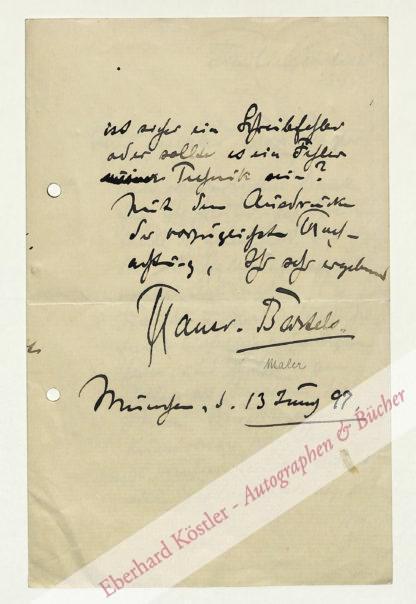 ist sicher ein Schreibfehler
oder sollte es ein Fehler
meiner Technik sein?
Mit dem Ausdrucke
der vorzüglichsten Hoch-
achtung, Ihr sehr ergebener
Hans v. Bartels.
Maler
München, d. 13 Juny 97
Eberhard Köstler - Autographen & Bücher